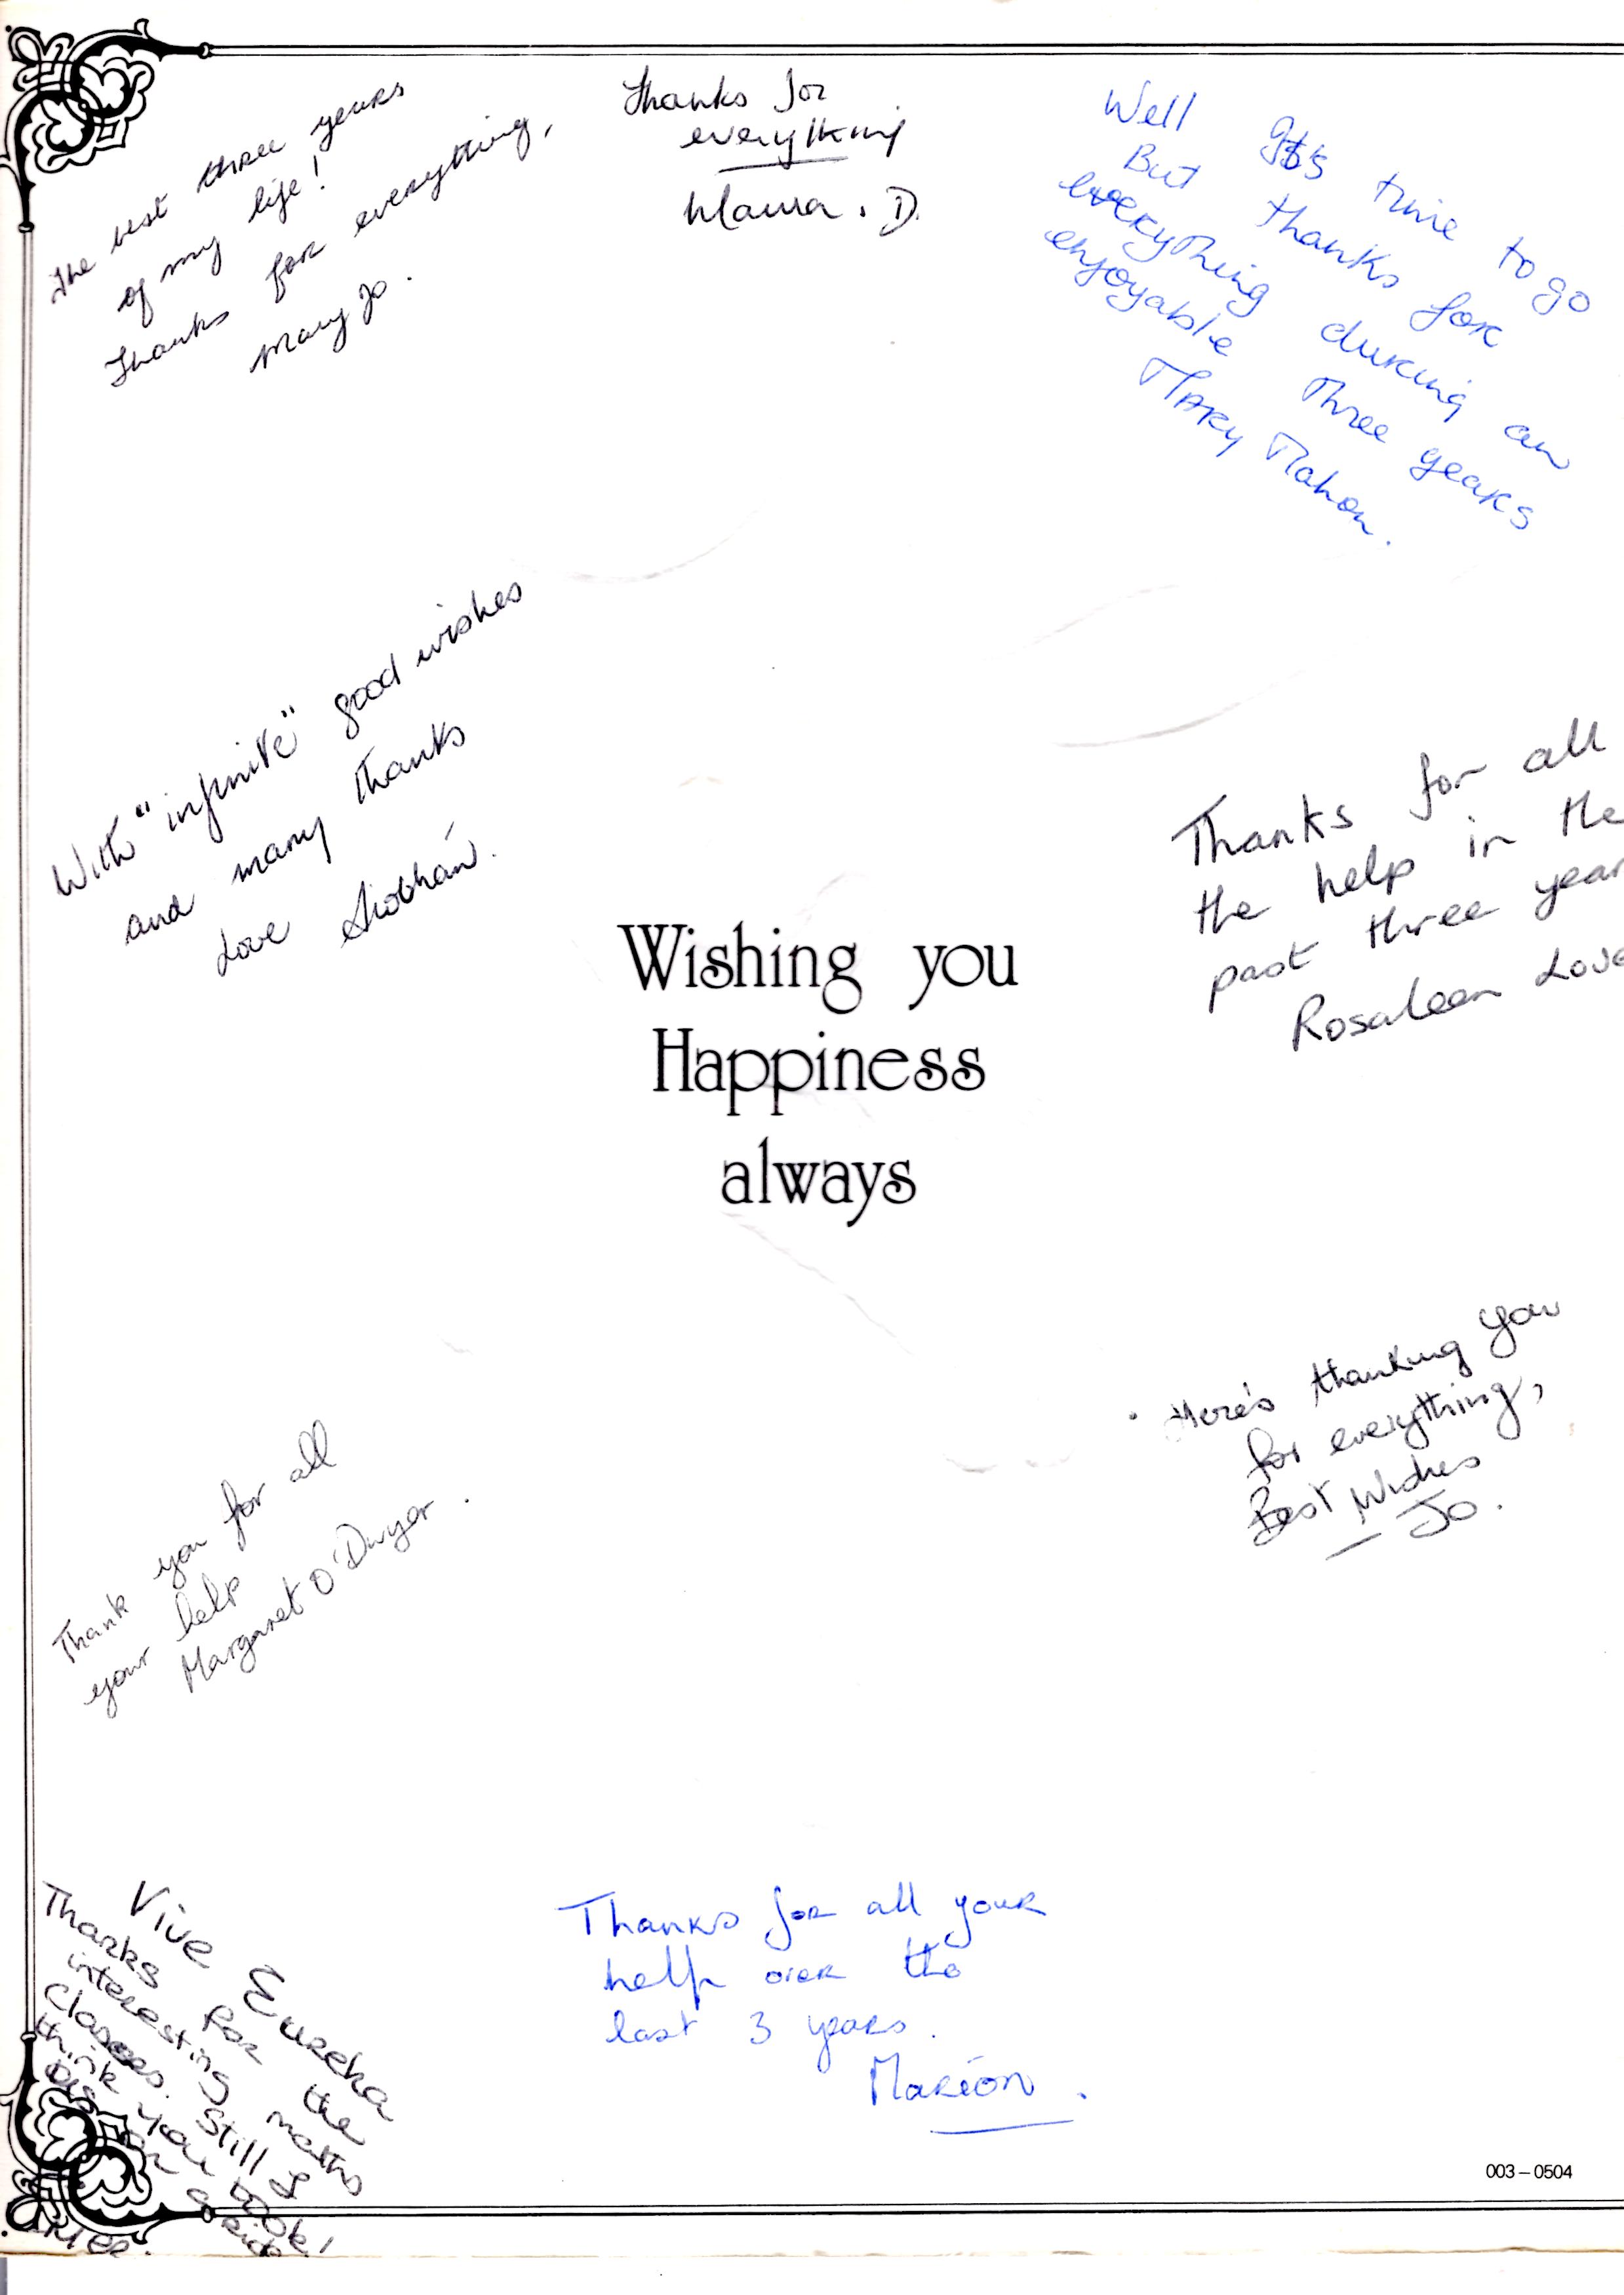 The best three years
of my life!
Thanks for everything,
Mary Jo.
Thanks for
everything
Maura. D.
Well It's time to go
But thanks for
everything during an
enjoyable three years
Mary Mahon.
With "infinite" good wishes
and many thanks
Love Siobhán.
Thanks for all
the help in the
past three year
Rosaleen Love
Wishing you
Happiness
always
Here's thanking you
for everything,
Best Wishes
— Jo.
Thank you for all
your help
Margaret O'Dwyer.
Vive Eureka
Thanks for the
interesting maths
Classes. Still I
think you took
us for a
ride!
Thanks for all your
help over the
last 3 years.
Marion.
003–0504